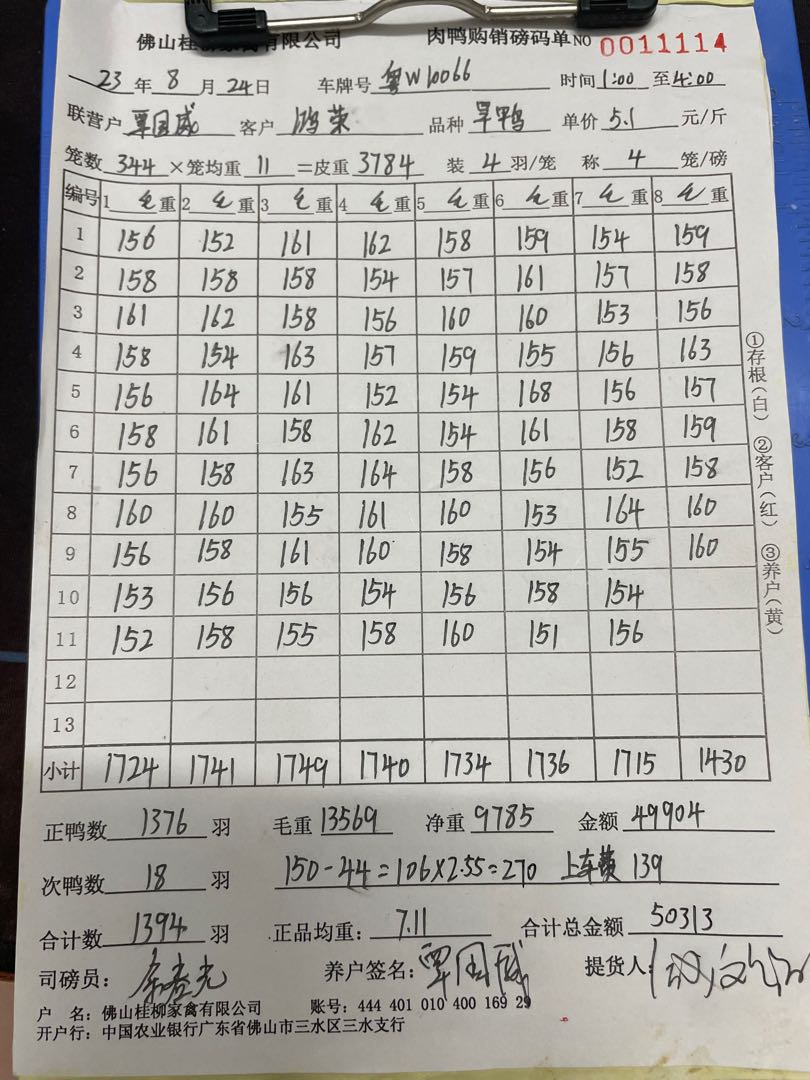 佛山桂柳家禽有限公司 肉鸭购销磅码单 NO 0011114
23 年 8 月 24 日 车牌号 粤W10066 时间 1:00 至 4:00
联营户 覃国威 客户 鸿荣 品种 旱鸭 单价 5.1 元/斤
笼数 344 ×笼均重 11 =皮重 3784 装 4 羽/笼 称 4 笼/磅
编号 1 毛重 2 毛重 3 毛重 4 毛重 5 毛重 6 毛重 7 毛重 8 毛重
1 156 152 161 162 158 159 154 159
2 158 158 158 154 157 161 157 158
3 161 162 158 156 160 160 153 156
4 158 154 163 157 159 155 156 163
5 156 164 161 152 154 168 156 157
6 158 161 158 162 154 161 158 159
7 156 158 163 164 158 156 152 158
8 160 160 155 161 160 153 164 160
9 156 158 161 160 158 154 155 160
10 153 156 156 154 156 158 154
11 152 158 155 158 160 151 156
12
13
小计 1724 1741 1749 1740 1734 1736 1715 1430
①存根(白) ②客户(红) ③养户(黄)
正鸭数 1376 羽 毛重 13569 净重 9785 金额 49904
次鸭数 18 羽 150-44=106×2.55=270 上车费 139
合计数 1394 羽 正品均重: 7.11 合计总金额 50313
司磅员: 养户签名: 覃国威 提货人:
户 名: 佛山桂柳家禽有限公司 账号: 444 401 010 400 169 29
开户行: 中国农业银行广东省佛山市三水区三水支行